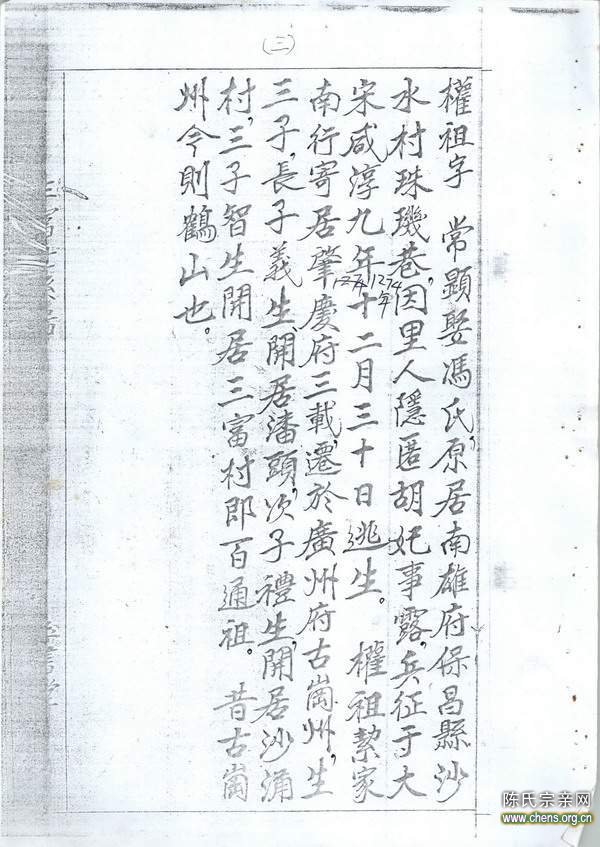 (三)
權祖字 常顯娶馮氏,原居南雄府保昌縣沙
水村珠璣巷,因里人隱匿胡妃事露,兵征于大
宋咸淳九年十二月三十日逃生。 權祖挈家
1274 1274年
南行寄居肇慶府三載,遷於廣州府古崗州,生
三子,長子義生,開居潘頭,次子禮生,開居沙涌
村,三子智生開居三富村即百通祖。 昔古崗
州今則鶴山也。
陈氏宗亲网
www.chens.org.cn